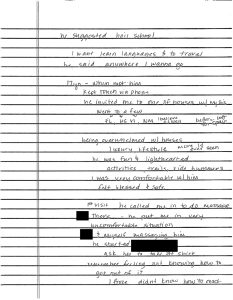 he suggested hair school
I want learn languages & to travel
he said anywhere I wanna go
17yo - when met him
kept touch via phone
he invited me to one of houses w/ my sis
went to a few
FL, US VI, NM
being overwhelmed w/ houses
luxury lifestyle
he was fun & lighthearted
activities trails, ride
I was very comfortable w/ him
felt blessed & safe
1st visit he called me in to do massage
There - he put me in very
uncomfortable situation
massaging him
he started
ask her to take off shirt
remember feeling not knowing how to
get out of it
I froze didn't know how to react